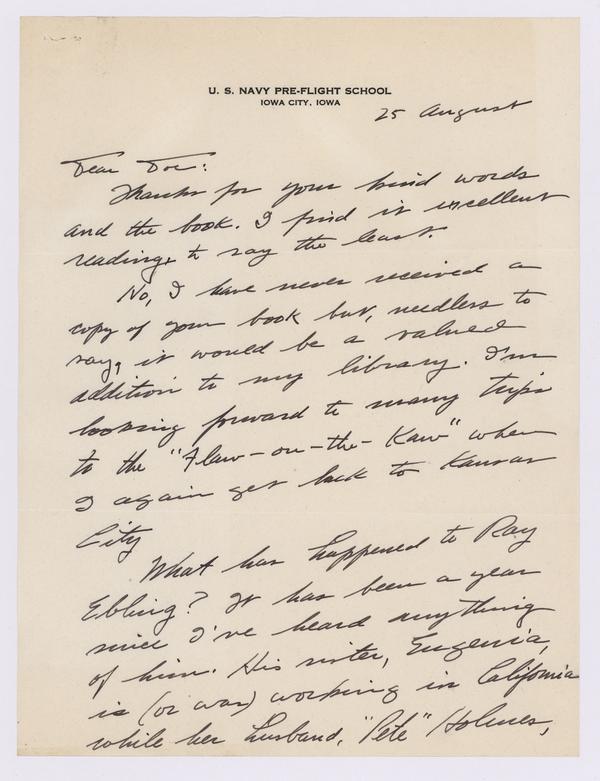 U. S. NAVY PRE-FLIGHT SCHOOL
IOWA CITY, IOWA
25 August
Dear Doc:
Thanks for your kind words
and the book. I find it excellent
reading, to say the least.
No, I have never received a
copy of your book but, needless to
say, it would be a valued
addition to my library. I'm
looking forward to many trips
to the "Flaw-on-the-Kaw" when
I again get back to Kansas
City
What has happened to Ray
Ebling? It has been a year
since I've heard anything
of him. His sister, Eugenia,
is (or was) working in California
while her husband, "Pete" Holmes,